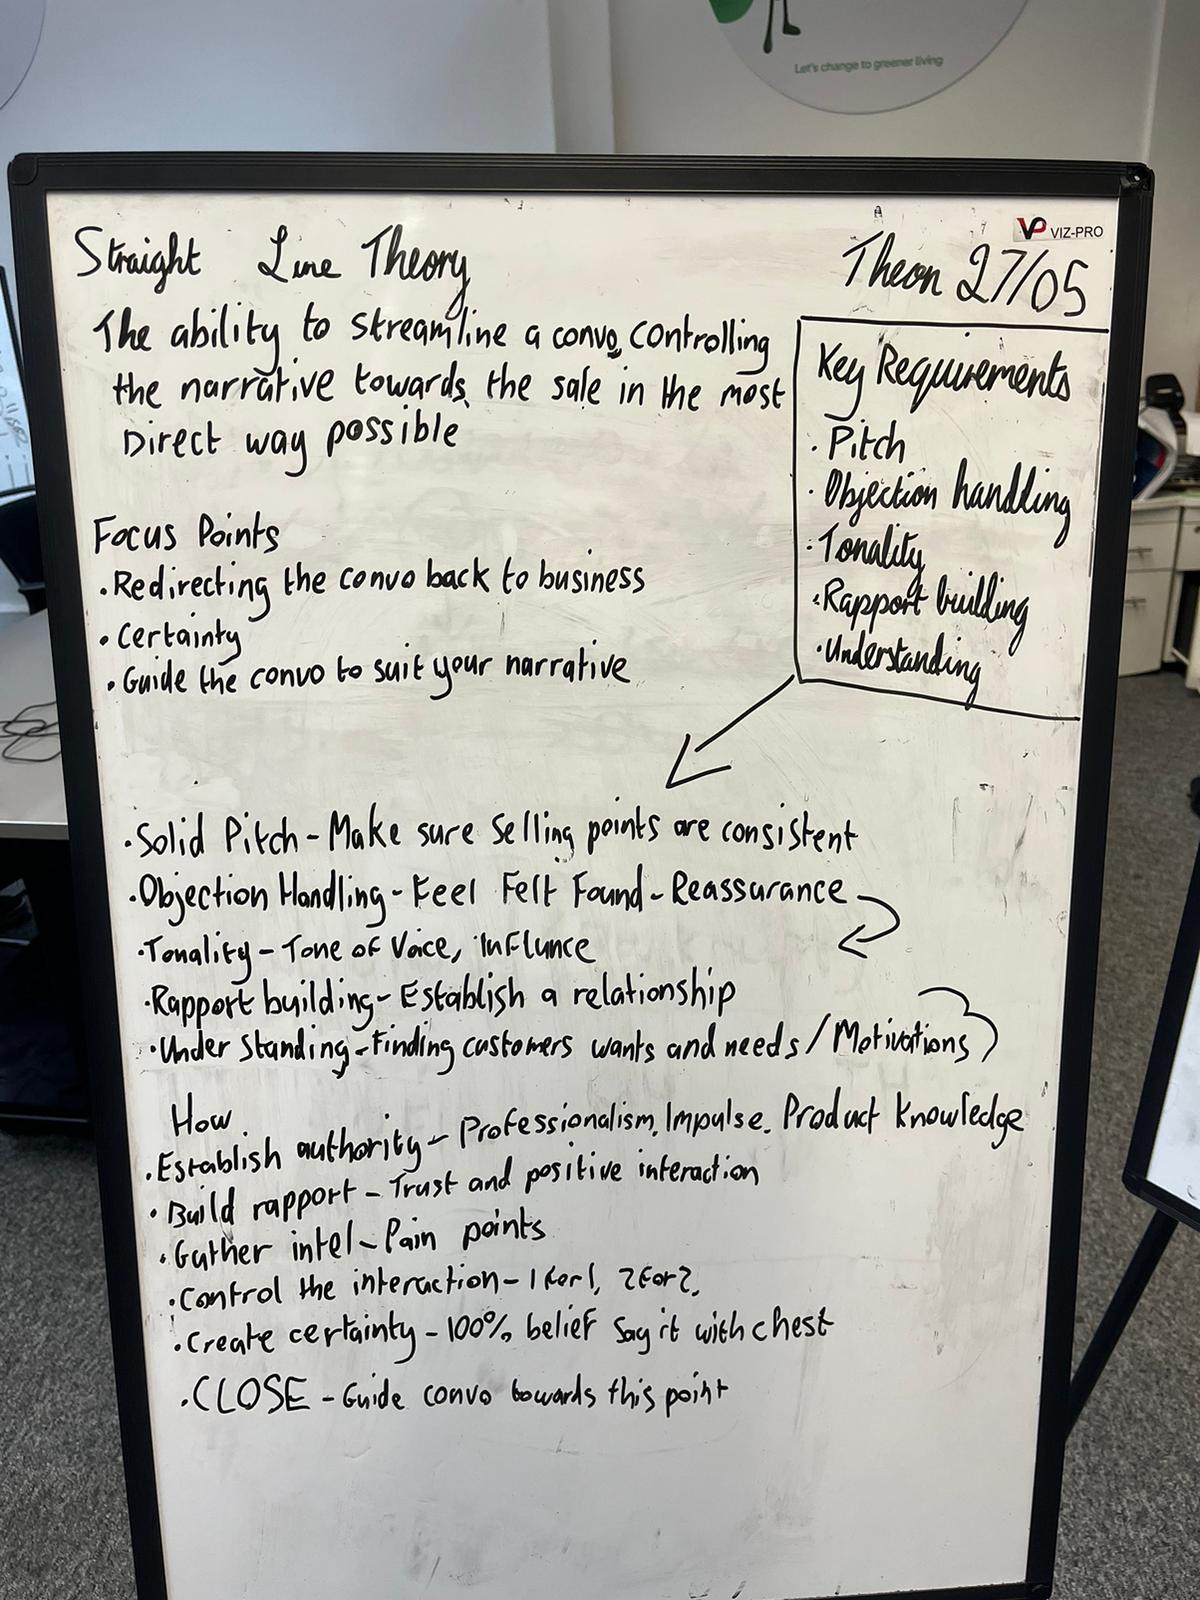 Let's change to greener living
VP VIZ-PRO
Straight Line Theory
Theon 27/05
The ability to streamline a convo, controlling
the narrative towards the sale in the most
Direct way possible
Key Requirements
· Pitch
· Objection handling
· Tonality
· Rapport building
· Understanding
Focus Points
· Redirecting the convo back to business
· Certainty
· Guide the convo to suit your narrative
· Solid Pitch - Make sure Selling points are consistent
· Objection Handling - Feel Felt Found - Reassurance
· Tonality - Tone of Voice, Influnce
· Rapport building - Establish a relationship
· Under Standing - Finding customers wants and needs / Motivations
How
· Establish authority - Professionalism, Impulse, Product Knowledge
· Build rapport - Trust and positive interaction
· Gather intel - Pain points
· Control the interaction - 1 for 1, 2 for 2,
· Create certainty - 100% belief Say it with chest
· CLOSE - Guide convo towards this point